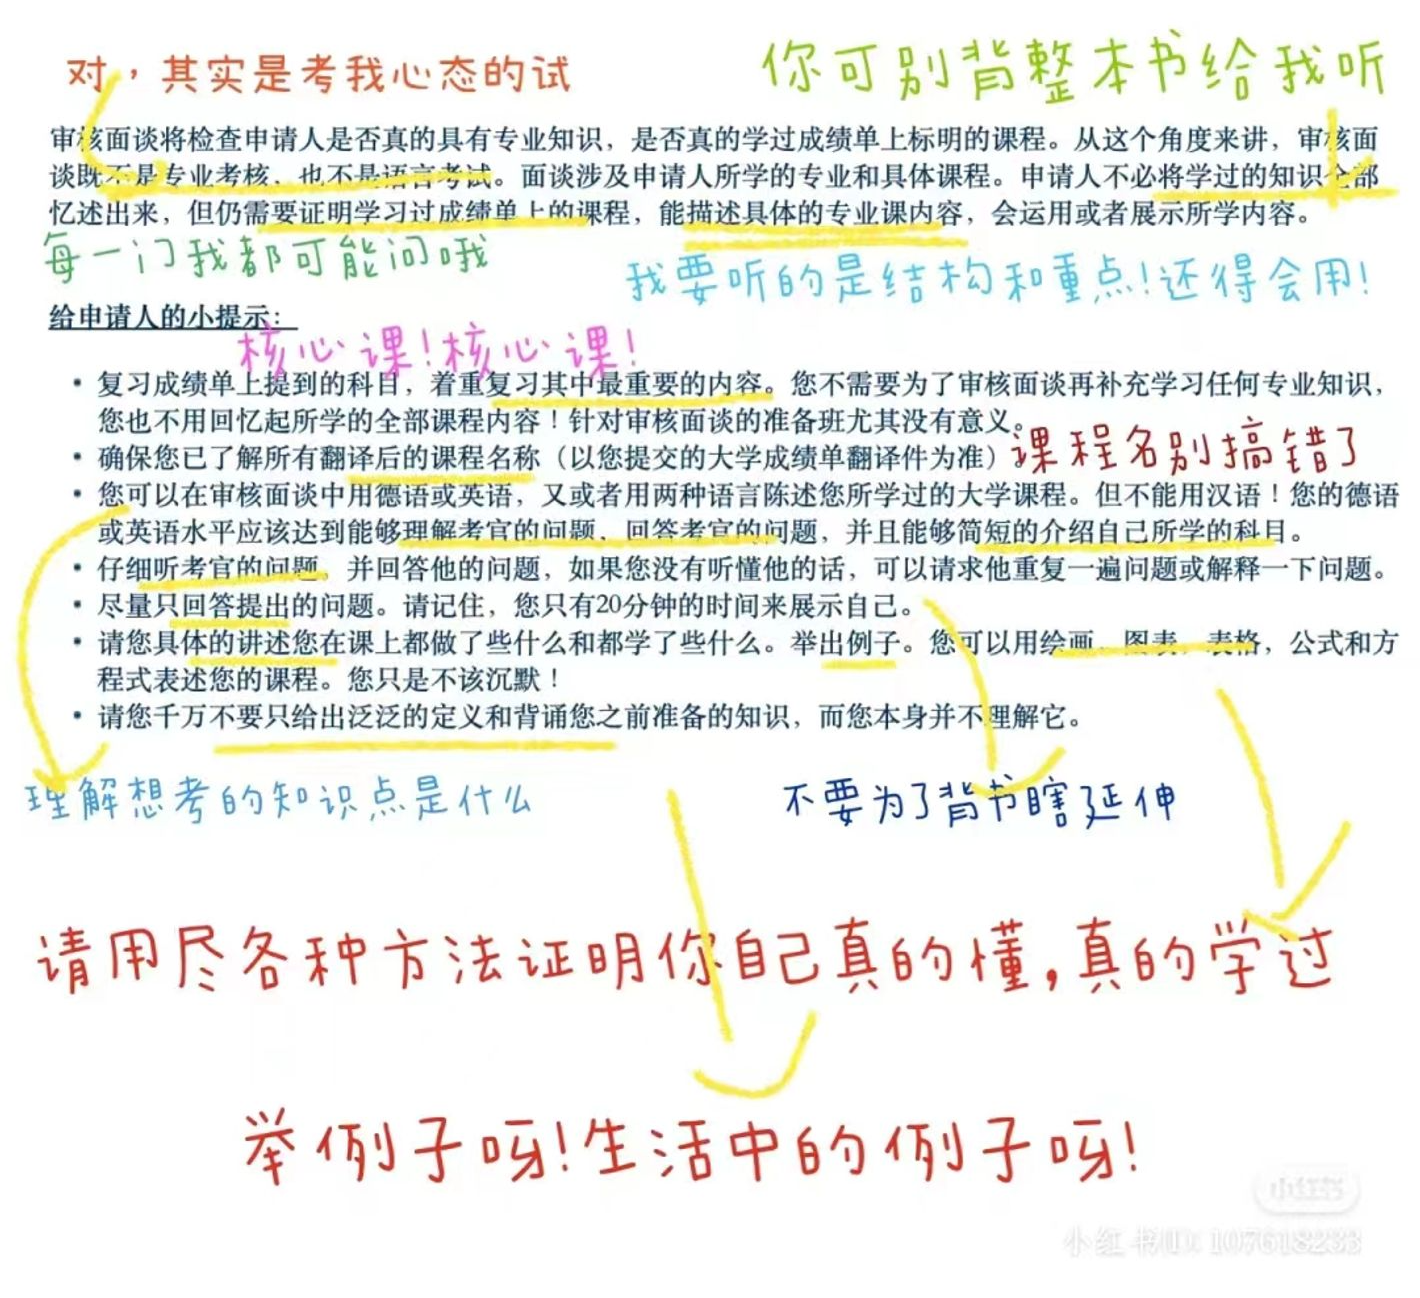 对，其实是考我心态的试
你可别背整本书给我听
审核面谈将检查申请人是否真的具有专业知识，是否真的学过成绩单上标明的课程。从这个角度来讲，审核面
谈既不是专业考核，也不是语言考试。面谈涉及申请人所学的专业和具体课程。申请人不必将学过的知识全部
忆述出来，但仍需要证明学习过成绩单上的课程，能描述具体的专业课内容，会运用或者展示所学内容。
每一门我都可能问哦
我要听的是结构和重点！还得会用！
给申请人的小提示：
核心课！核心课！
• 复习成绩单上提到的科目，着重复习其中最重要的内容。您不需要为了审核面谈再补充学习任何专业知识，
您也不用回忆起所学的全部课程内容！针对审核面谈的准备班尤其没有意义。
• 确保您已了解所有翻译后的课程名称（以您提交的大学成绩单翻译件为准）。
课程名别搞错了
• 您可以在审核面谈中用德语或英语，又或者用两种语言陈述您所学过的大学课程。但不能用汉语！您的德语
或英语水平应该达到能够理解考官的问题，回答考官的问题，并且能够简短的介绍自己所学的科目。
• 仔细听考官的问题，并回答他的问题，如果您没有听懂他的话，可以请求他重复一遍问题或解释一下问题。
• 尽量只回答提出的问题。请记住，您只有20分钟的时间来展示自己。
• 请您具体的讲述您在课上都做了些什么和都学了些什么。举出例子。您可以用绘画，图表，表格，公式和方
程式表述您的课程。您只是不该沉默！
• 请您千万不要只给出泛泛的定义和背诵您之前准备的知识，而您本身并不理解它。
理解想考的知识点是什么
不要为了背书瞎延伸
请用尽各种方法证明你自己真的懂，真的学过
举例子呀！生活中的例子呀！
小红书
小红书ID: 107618233